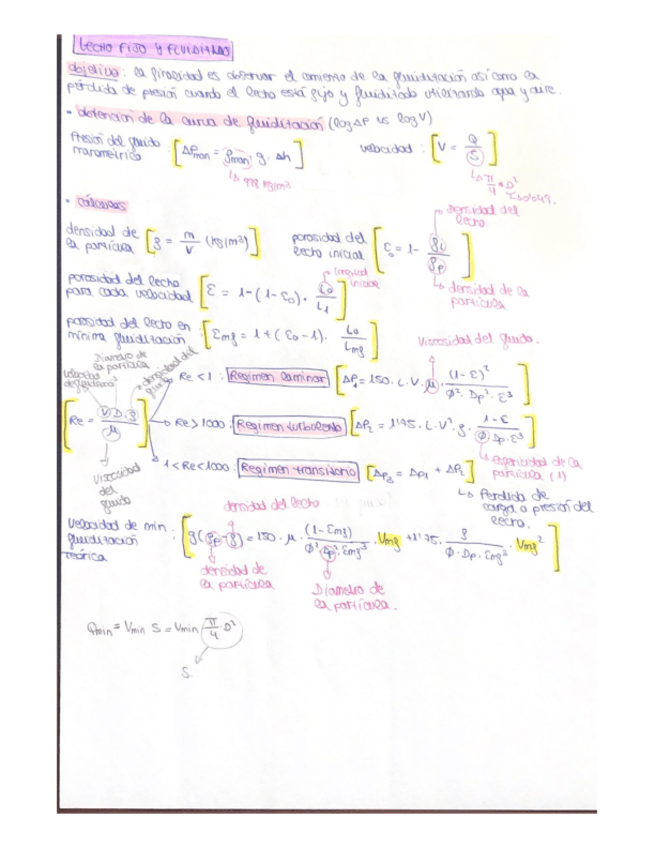 LECHO FIJO Y FLUIDIZADO
objetivo: la finalidad es observar el comienzo de la fluidización así como la
pérdida de presión cuando el lecho está fijo y fluidizado utilizando agua y aire.
• obtención de la curva de fluidización (log ΔP vs log V)
Presión del fluido manométrica : [ΔPman = ρman · g · Δh]
↳ 998 kg/m³
velocidad : [V = Q/S]
↳ π/4 · D²
• cálculos
densidad de la partícula [ρ = m/V (kg/m³)]
porosidad del lecho inicial [ε₀ = 1 - ρL/ρp]
densidad del lecho
densidad de la partícula
porosidad del lecho para cada velocidad [ε = 1-(1-ε₀) · L₀/L₁]
longitud inicial
porosidad del lecho en mínima fluidización : [εmf = 1+(ε₀-1) · L₀/Lmf]
Viscosidad del fluido.
Diametro de la partícula
velocidad del fluido
densidad del fluido
[Re = V·D·ρ/μ]
Viscosidad del fluido
Re < 1 : Regimen laminar [ΔP₁ = 150 · L · V · μ · (1-ε)²/Ø² · Dp² · ε³]
Re > 1000 : Regimen turbulento [ΔP₂ = 1'75 · L · V² · ρ · 1-ε/Ø · Dp · ε³]
1 < Re < 1000 : Regimen transitorio [ΔP₃ = ΔP₁ + ΔP₂]
↳ esfericidad de la partícula (1)
↳ Perdida de carga o presión del lecho.
densidad del lecho
Velocidad de min. fluidización teórica : [g(ρp-ρ) = 150 · μ · (1-εmf)/Ø² · Dp² · εmf³ · Vmf + 1'75 · ρ/Ø · Dp · εmf³ · Vmf²]
densidad de la partícula
Diametro de la partícula.
Qmin = Vmin S = Vmin π/4 D²
S